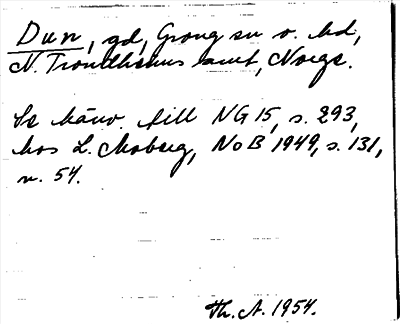 Dun, gd, Grong sn o. hd,
N. Trondhems amt, Norge.
Se hänv. till NG 15, s. 293,
hos L. Moberg, NoB 1949, s. 131,
n. 54.
Th. A. 1954.